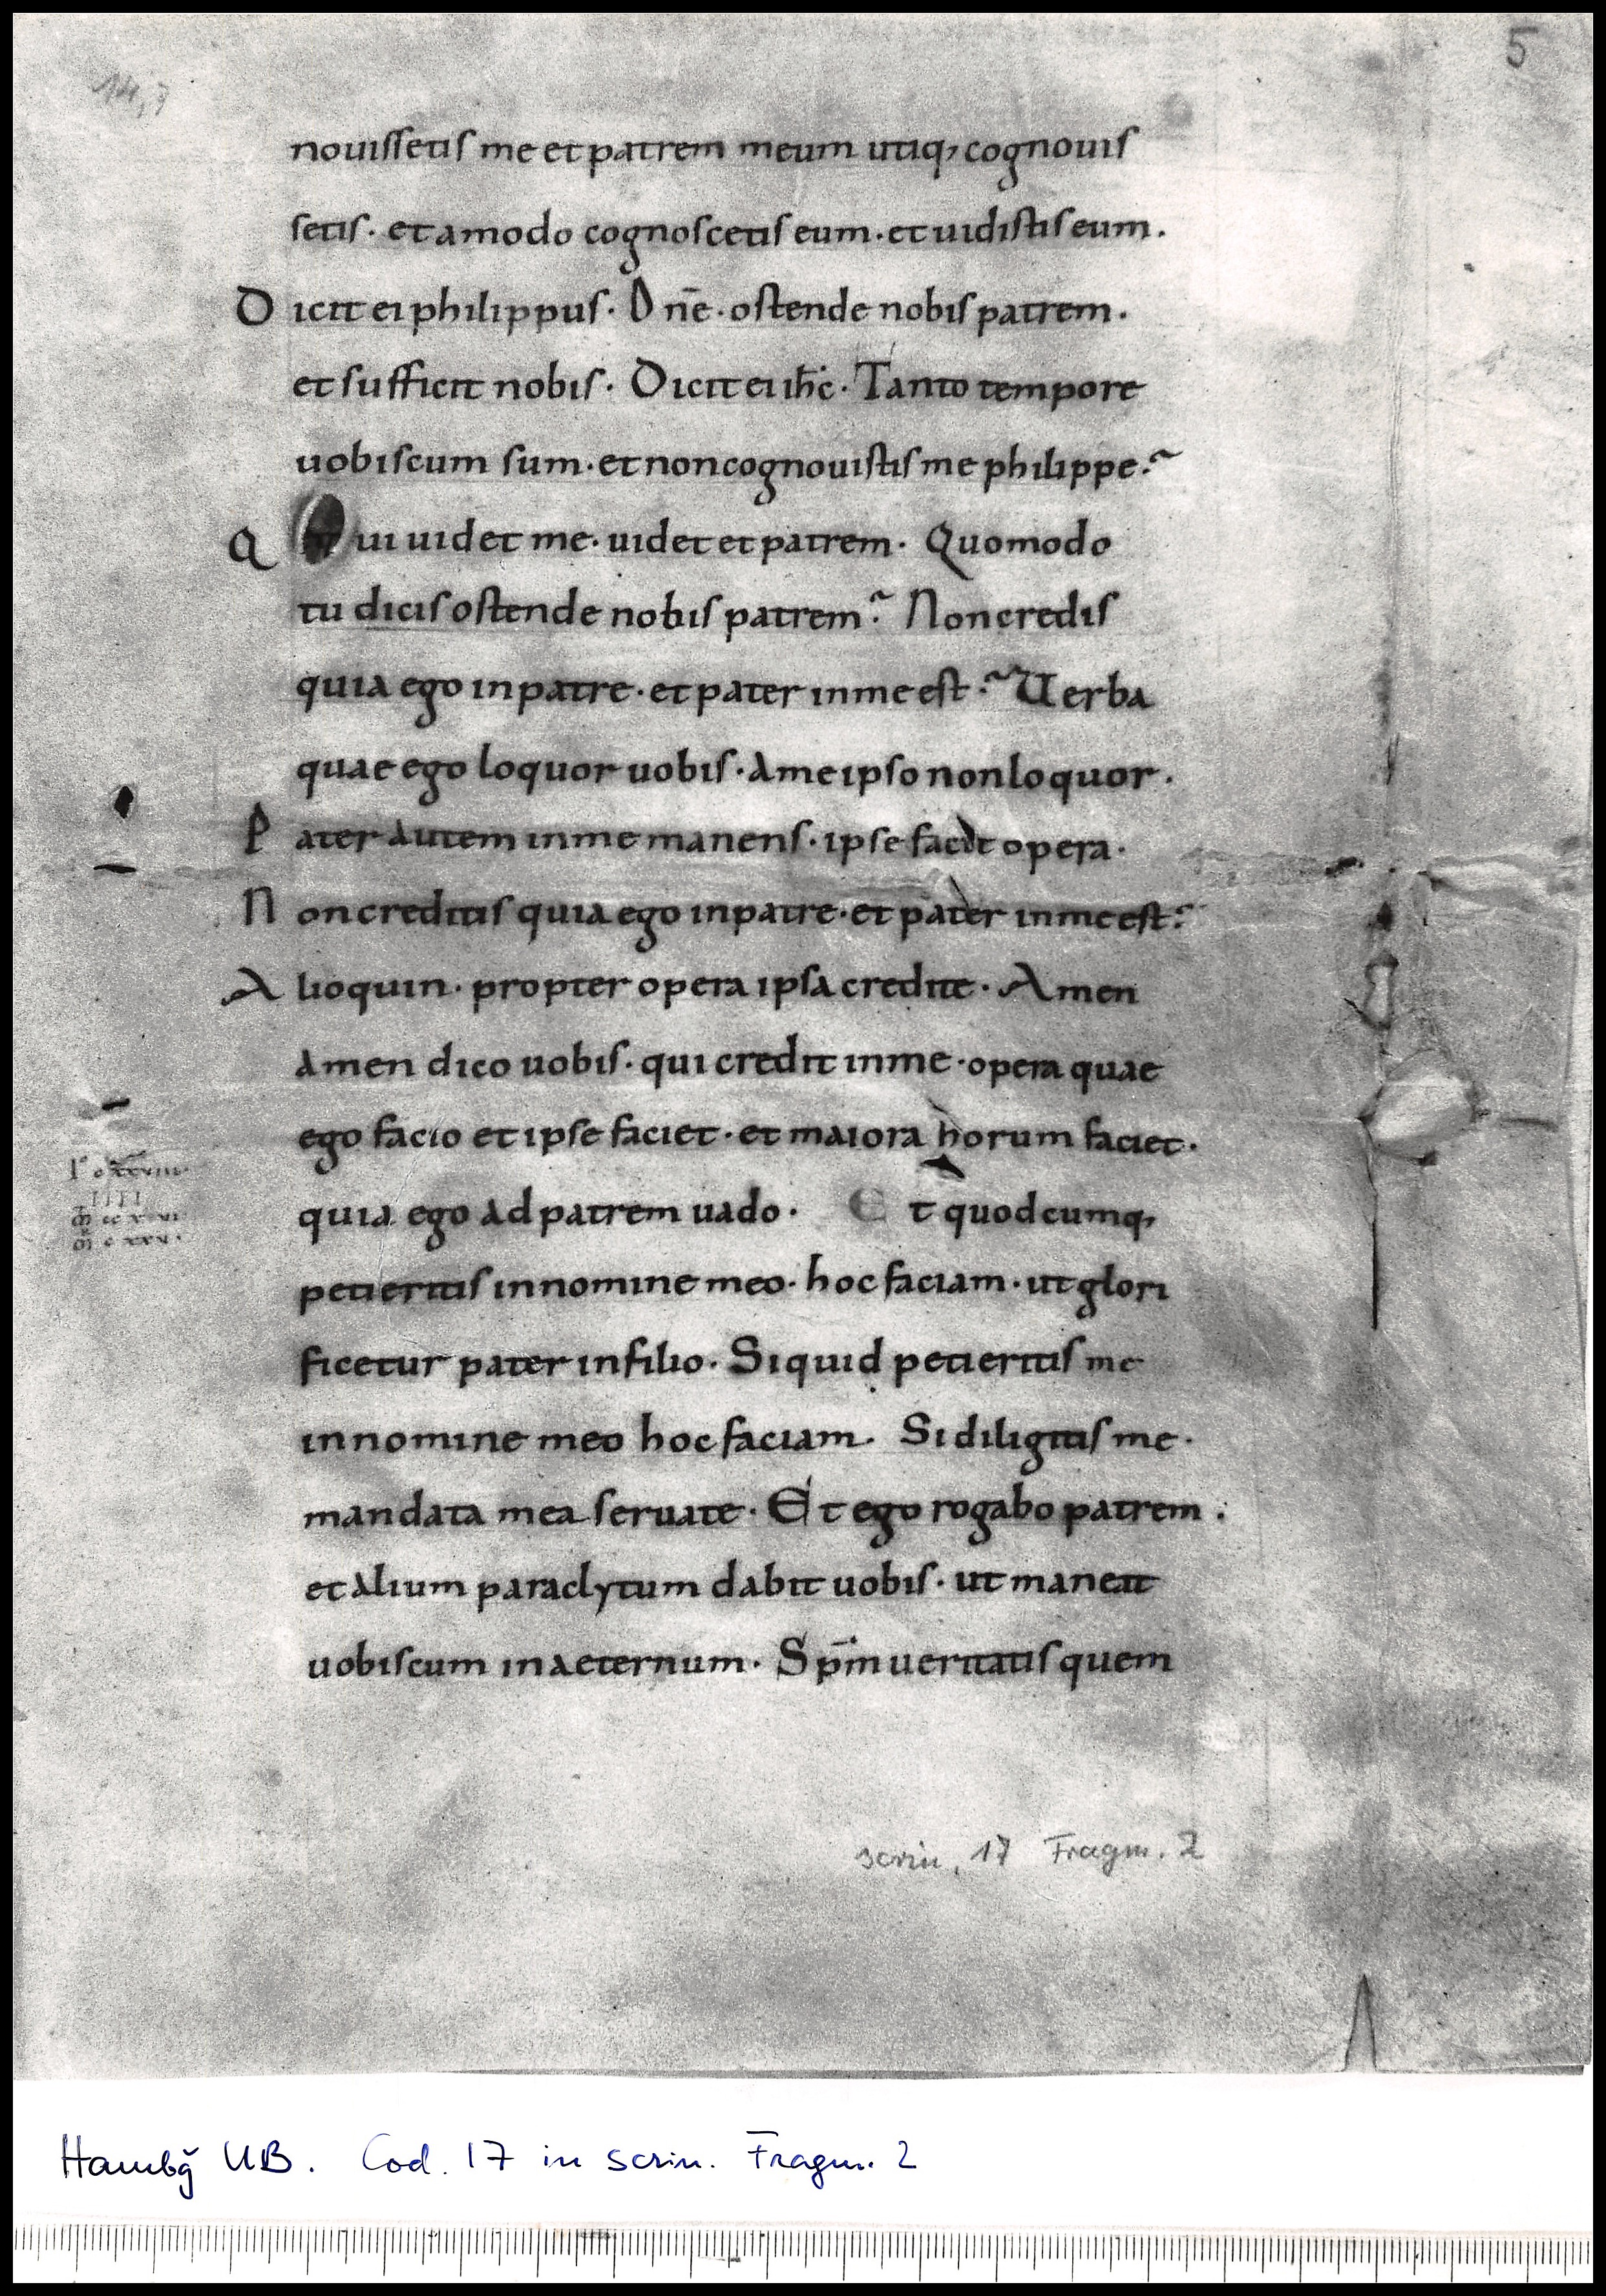 14,7
5
nouissetis me et patrem meum utiq; cognouis
setis · et amodo cognoscetis eum · et uidistis eum.
Dicit ei philippus · Dn̄e · ostende nobis patrem ·
et sufficit nobis · Dicit ei ih̄c · Tanto tempore
uobiscum sum · et non cognouistis me philippe?
Qui uidet me · uidet et patrem · Quomodo
tu dicis ostende nobis patrem? Non credis
quia ego in patre · et pater in me est? Uerba
quae ego loquor uobis · A me ipso non loquor ·
Pater autem in me manens · ipse facit opera ·
Non creditis quia ego in patre · et pater in me est?
Alioquin · propter opera ipsa credite · Amen
amen dico uobis · qui credit in me · opera quae
ego facio et ipse faciet · et maiora horum faciet ·
quia ego ad patrem uado · Et quodcumq;
petieritis in nomine meo · hoc faciam · ut glori
ficetur pater in filio · Si quid petieritis me
in nomine meo hoc faciam · Si diligitis me ·
mandata mea seruate · Et ego rogabo patrem ·
et alium paraclytum dabit uobis · ut maneat
uobiscum in aeternum · Sp̄m ueritatis quem
IIII
scrin. 17 Fragm. 2
Hambg̃ UB. Cod. 17 in scrin. Fragm. 2